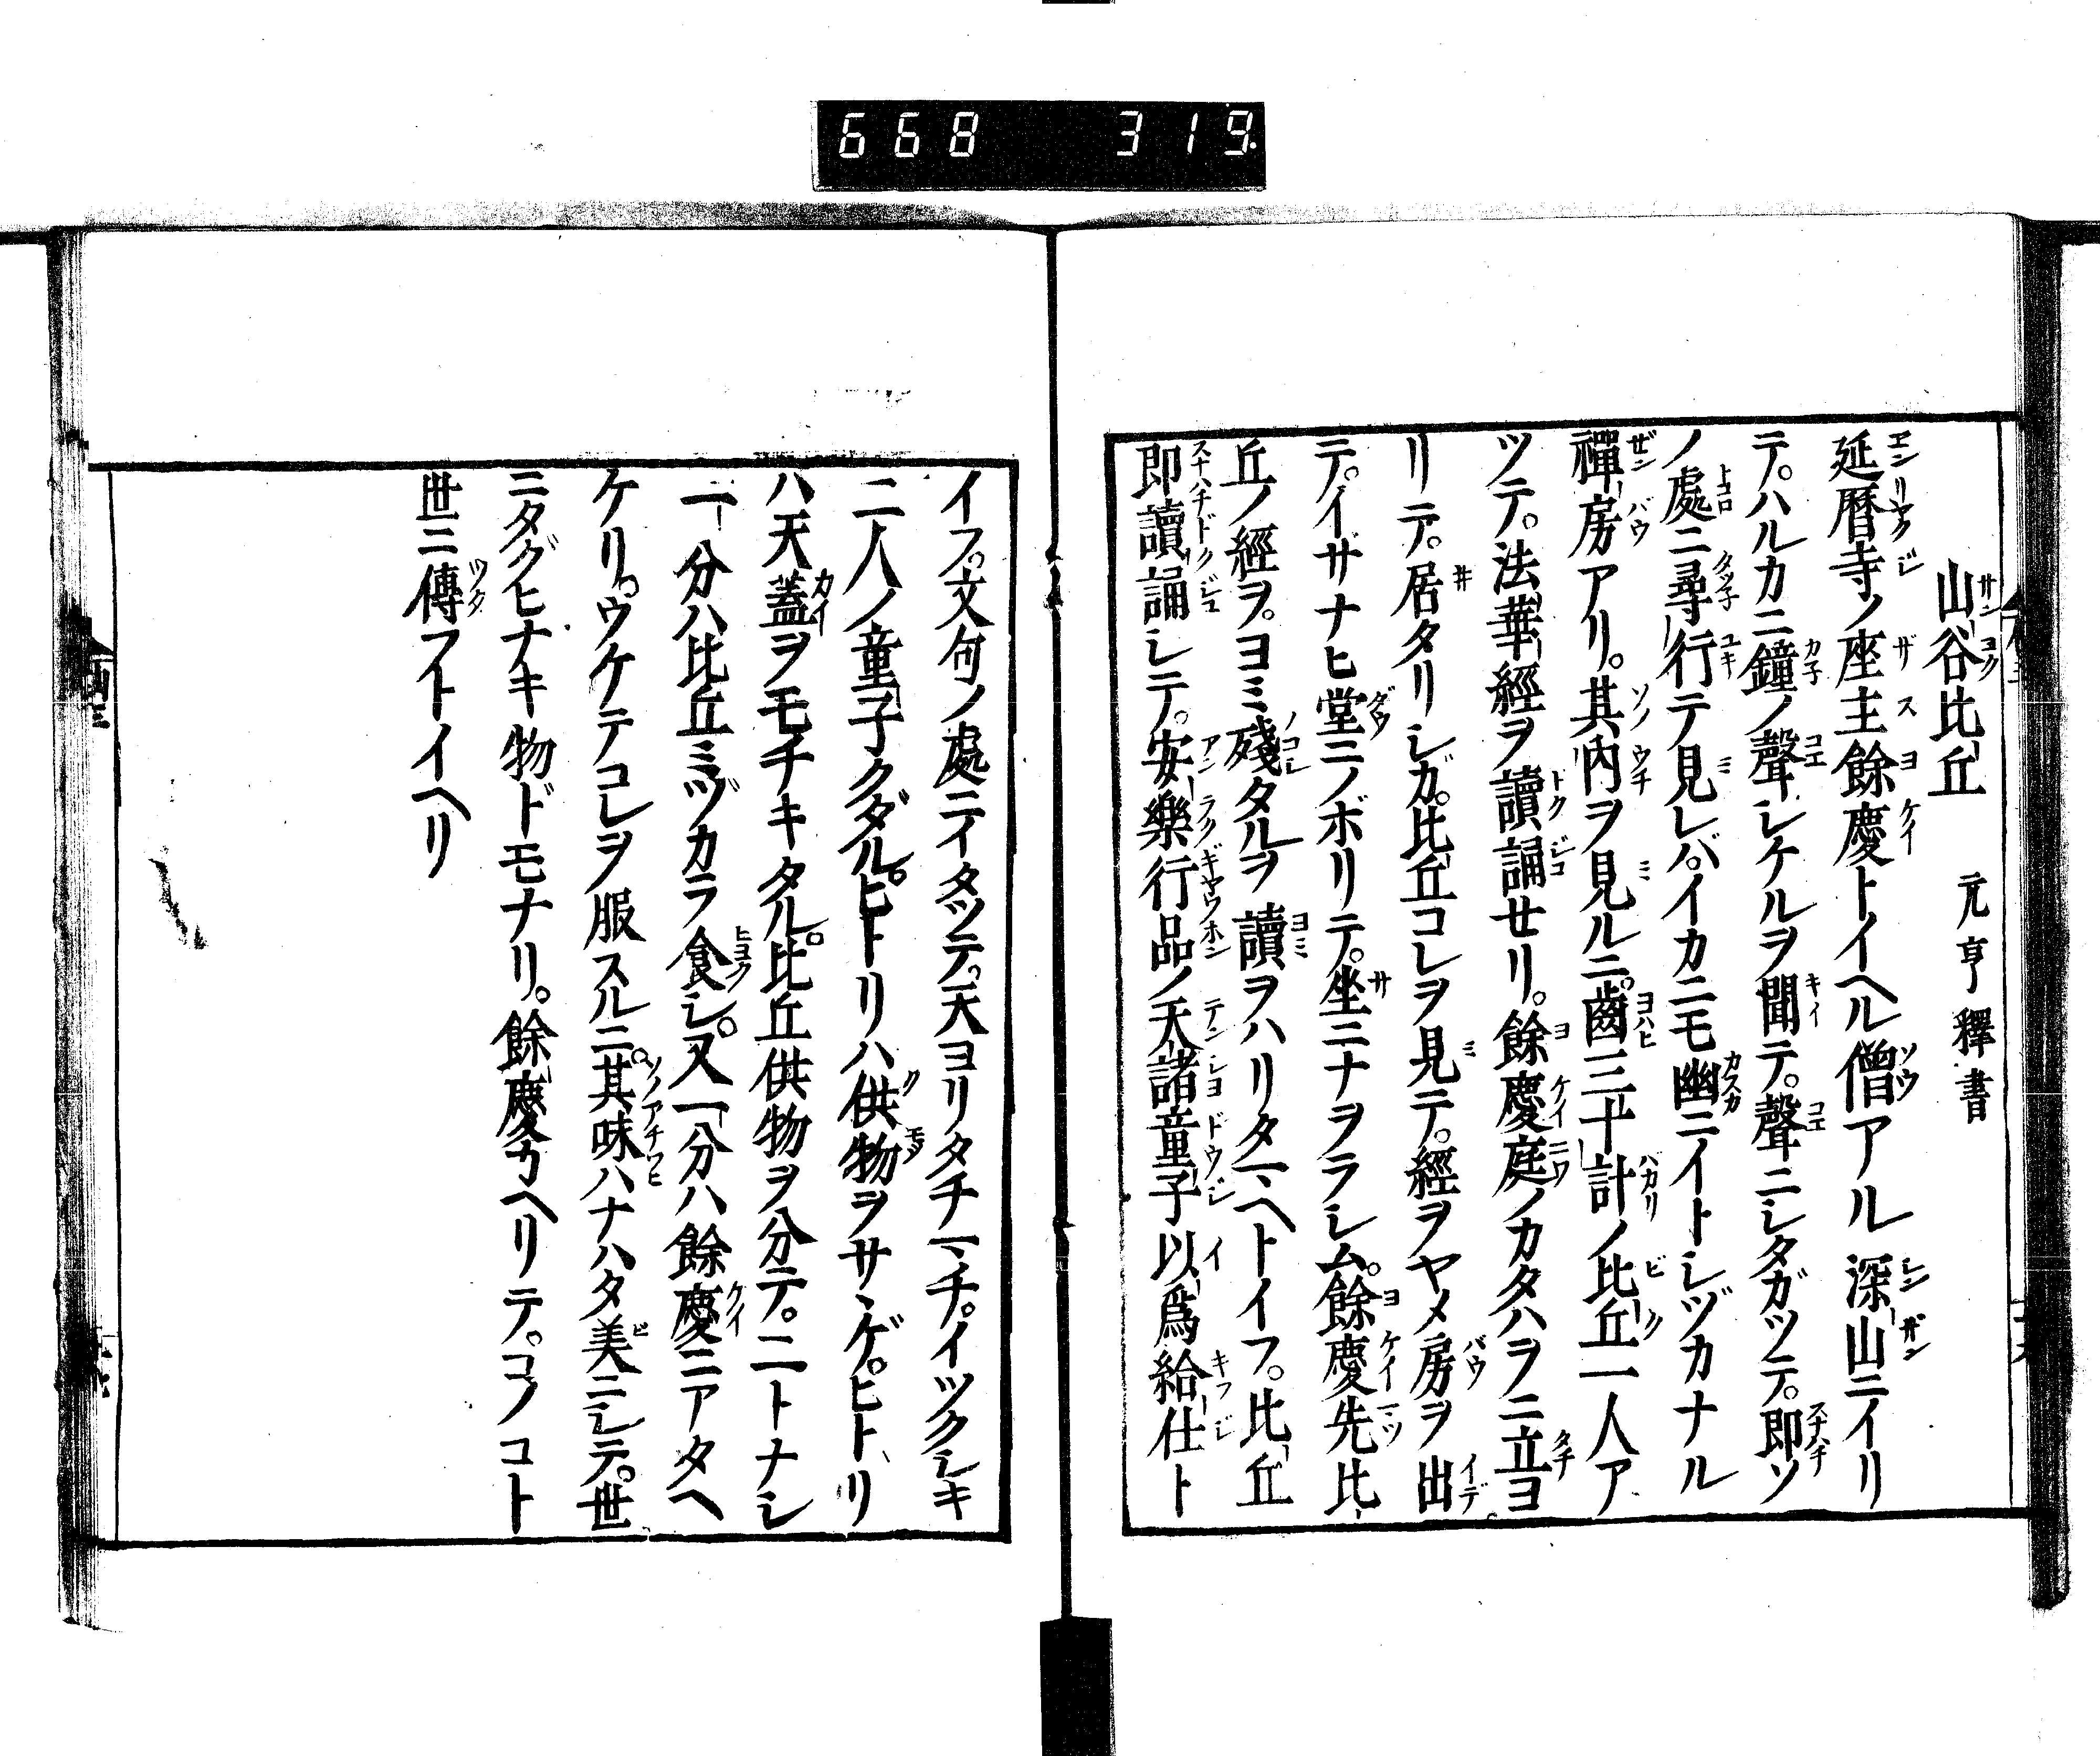 668 319
山谷比丘 元亨釋書
延暦寺ノ座主餘慶トイヘル僧アル深山ニイリ
テ。ハルカニ鐘ノ聲シケルヲ聞テ。聲ニシタガツテ。即ソ
ノ處ニ尋行テ見レバ。イカニモ幽ニイトシヅカナル
禪房アリ。其内ヲ見ルニ。齒三十計ノ比丘一人ア
ツテ。法華經ヲ讀誦セリ。餘慶庭ノカタハラニ立ヨ
リテ。居タリシガ。比丘コレヲ見テ。經ヲヤメ房ヲ出
テ。イザナヒ堂ニノボリテ。坐ニナヲラシム。餘慶先比
丘ノ經ヲ。ヨミ殘タルヲ讀ヲハリタマヘトイフ。比丘
即讀誦シテ。安樂行品ノ天諸童子以爲給仕ト
イフ。文句ノ處ニイタツテ。天ヨリタチマチ。イツクシキ
二人ノ童子クダル。ヒトリハ供物ヲサヽゲ。ヒトリ
ハ天蓋ヲモチキタル。比丘供物ヲ分テ。二トナシ
一分ハ比丘ミヅカラ食シ。又一分ハ餘慶ニアタヘ
ケリ。ウケテコレヲ服スルニ。其味ハナハタ美ニシテ。世
ニタグヒナキ物ドモナリ。餘慶カヘリテ。コノコト
世ニ傳フトイヘリ